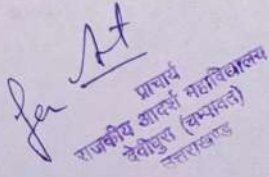 for
प्राचार्य
राजकीय आदर्श महाविद्यालय
देवीधुरा (चम्पावत)
उत्तराखण्ड